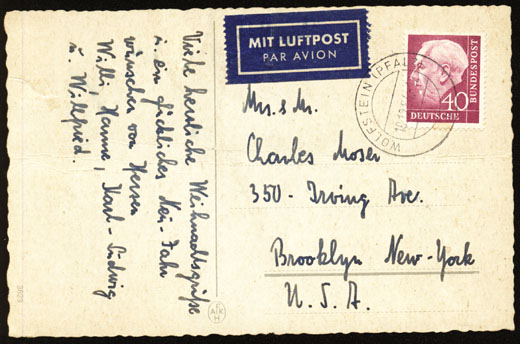 Viele herzliche Weihnachtsgrüße
u. ein glückliches Neu-Jahr
wünschen von Herzen
Willi, Hanne, Karl-Ludwig
u. Wilfried.
MIT LUFTPOST
PAR AVION
WOLFSTEIN (PFALZ)
40
DEUTSCHE
BUNDESPOST
Mrs. & Mr.
Charles Moser
350 - Irving Ave.
Brooklyn New-York
U.S.A.
3629